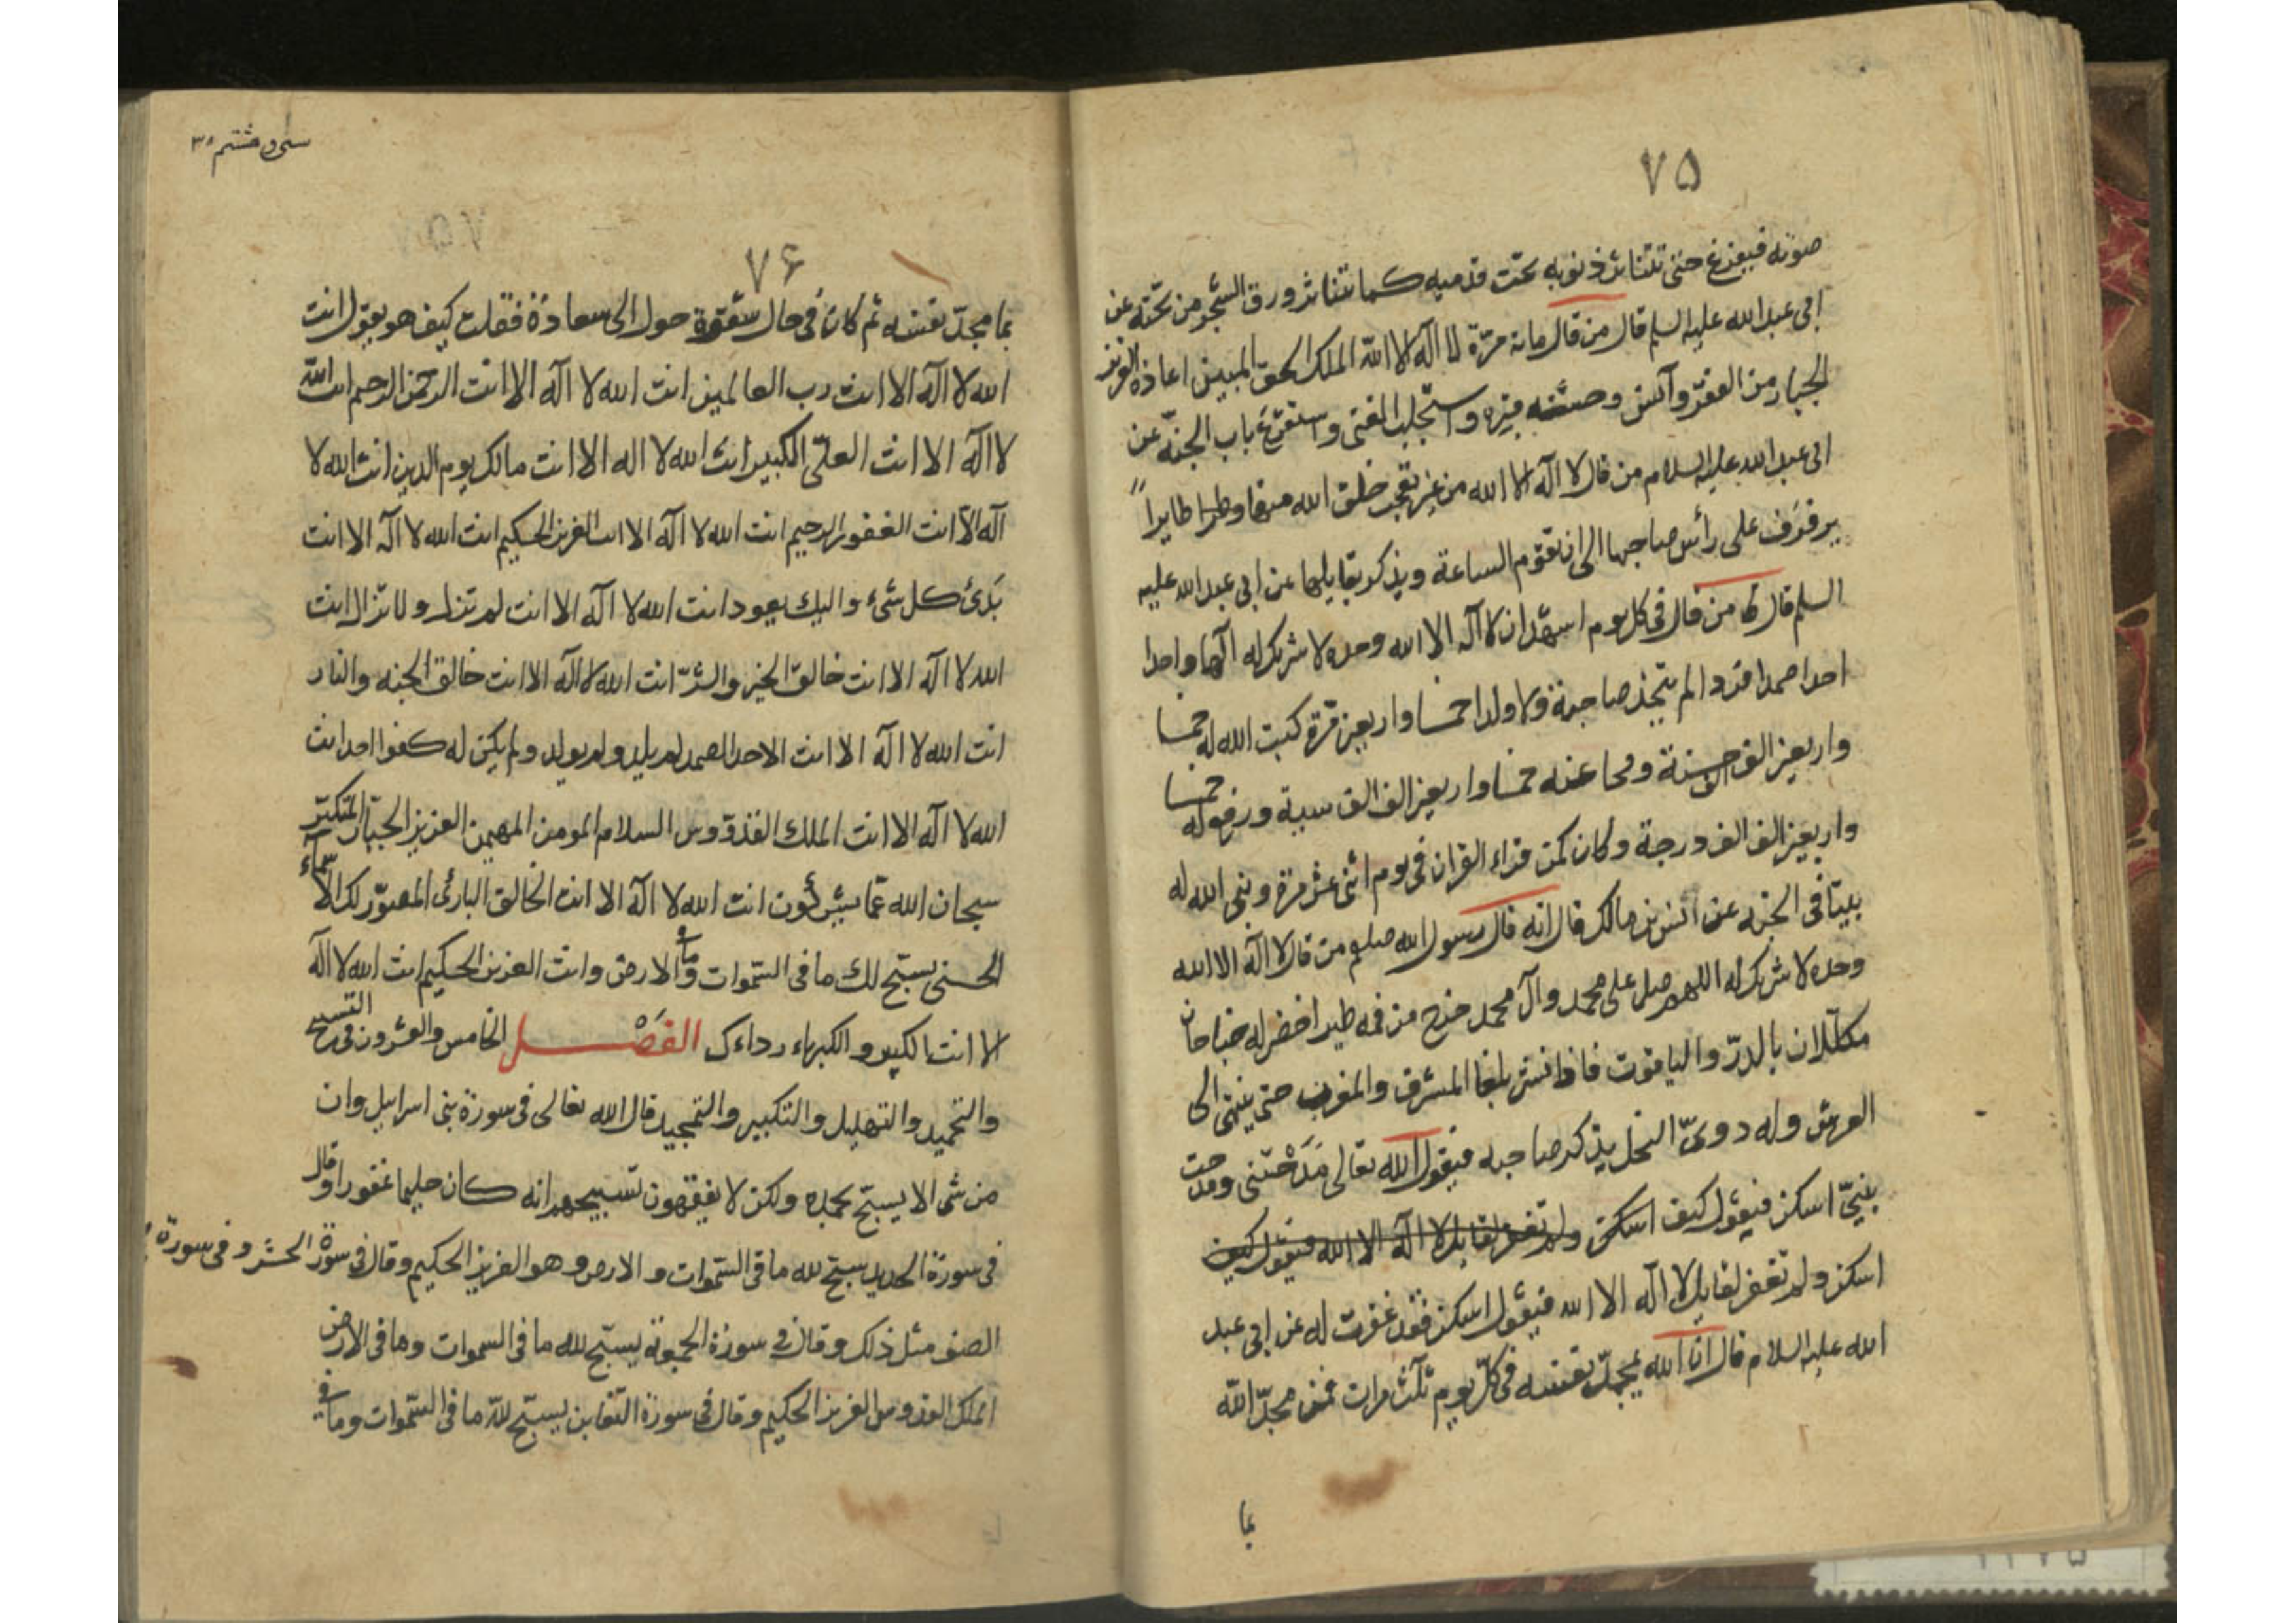 ٧٥
صوته فيفزع حتى تتناثر ذنوبه تحت قدميه كما تتناثر ورق الشجر من تحته عن
ابى عبد الله عليه السلم قال من قال مائة مرّة لا اله الا الله الملك الحق المبين اعاذه العزيز
الجبار من الفقر وآنس وحشته قبره واستجلب الغنى واستقرع باب الجنة عن
ابى عبد الله عليه السلام من قال لا اله الا الله من غير تعجب خلق الله منها طايراً
يرفرف على رأس صاحبها الى ان تقوم الساعة ويذكر بقايلها عن ابى عبد الله عليه
السلم قال من قال فى كل يوم اشهد ان لا اله الا الله وحده لا شريك له الها واحدا
احدا صمدا فردا لم يتخذ صاحبة ولا ولدا خمسا واربعين مرّة كتب الله له خمسا
واربعين الف الف حسنة ومحا عنه خمسا واربعين الف الف سيئة ورفع له خمسا
واربعين الف الف درجة وكان كمن قراء القران فى يوم اثنى عشر مرة وبنى الله له
بيتا فى الجنة عن انس بن مالك قال انه قال رسول الله صلعم من قال لا اله الا الله
وحده لا شريك له اللهم صل على محمد وآل محمد خرج من فمه طير اخضر له جناحان
مكللان بالدرّ والياقوت فاذا نشر بلغا المشرق والمغرب حتى ينتهى الى
العرش وله دوىّ النحل يذكر صاحبه فيقول الله تعالى مَدَحْتَنى ومدحت
نبيّى اسكن فيقول كيف اسكن ولم تغفر لقايل لا اله الا الله فيقول كيف
اسكن ولم تغفر لقايل لا اله الا الله فيقول اسكن فقد غفرت له عن ابى عبد
الله عليه السلام قال ان الله يمجّد نفسه فى كلّ يوم ثلث مرات فمن مجّد الله
بما
سى و هشتم ٣٨
٧۶
بما مجدّ نفسه ثم كان فى حال شقوة حول الى سعادة فقلت كيف هو يقول انت
الله لا اله الا انت رب العالمين انت الله لا اله الا انت الرحمن الرحيم انت الله
لا اله الا انت العلىّ الكبير انت الله لا اله الا انت مالك يوم الدين انت الله لا
اله الا انت الغفور الرحيم انت الله لا اله الا انت العزيز الحكيم انت الله لا اله الا انت
بَدئ كل شىء واليك يعود انت الله لا اله الا انت لم تزل ولا تزال انت
الله لا اله الا انت خالق الخير والشرّ انت الله لا اله الا انت خالق الجنه والنار
انت الله لا اله الا انت الاحد الصمد لم يلد ولم يولد ولم يكن له كفوا احد انت
الله لا اله الا انت الملك القدّوس السلام المومن المهيمن العزيز الجبّار المتكبّر
سبحان الله عمّا يشركون انت الله لا اله الا انت الخالق البارئ المصوّر لك الاسماء
الحسنى يسبّح لك ما فى السّموات وما و الارض وانت العزيز الحكيم انت الله لا اله
الا انت الكبير والكبرياء رداءك الفَصْــل الخامس والعشرون فى التسبيح
والتحميد والتهليل والتكبير والتمجيد قال الله تعالى فى سورة بنى اسرايل وان
من شى الا يسبّح بحمده ولكن لا يفقهون تسبيحهم انه كان حليما غفورا وقال
فى سورة الحديد سبّح لله ما فى السّموات والارض وهو العزيز الحكيم وقال فى سورة الحشر و فى سورة
الصف مثل ذلك وقال فى سورة الجمعة يسبّح لله ما فى السموات وما فى الارض
الملك القدوس العزيز الحكيم وقال فى سورة التغابن يسبّح للّه ما فى السّموات وما فى